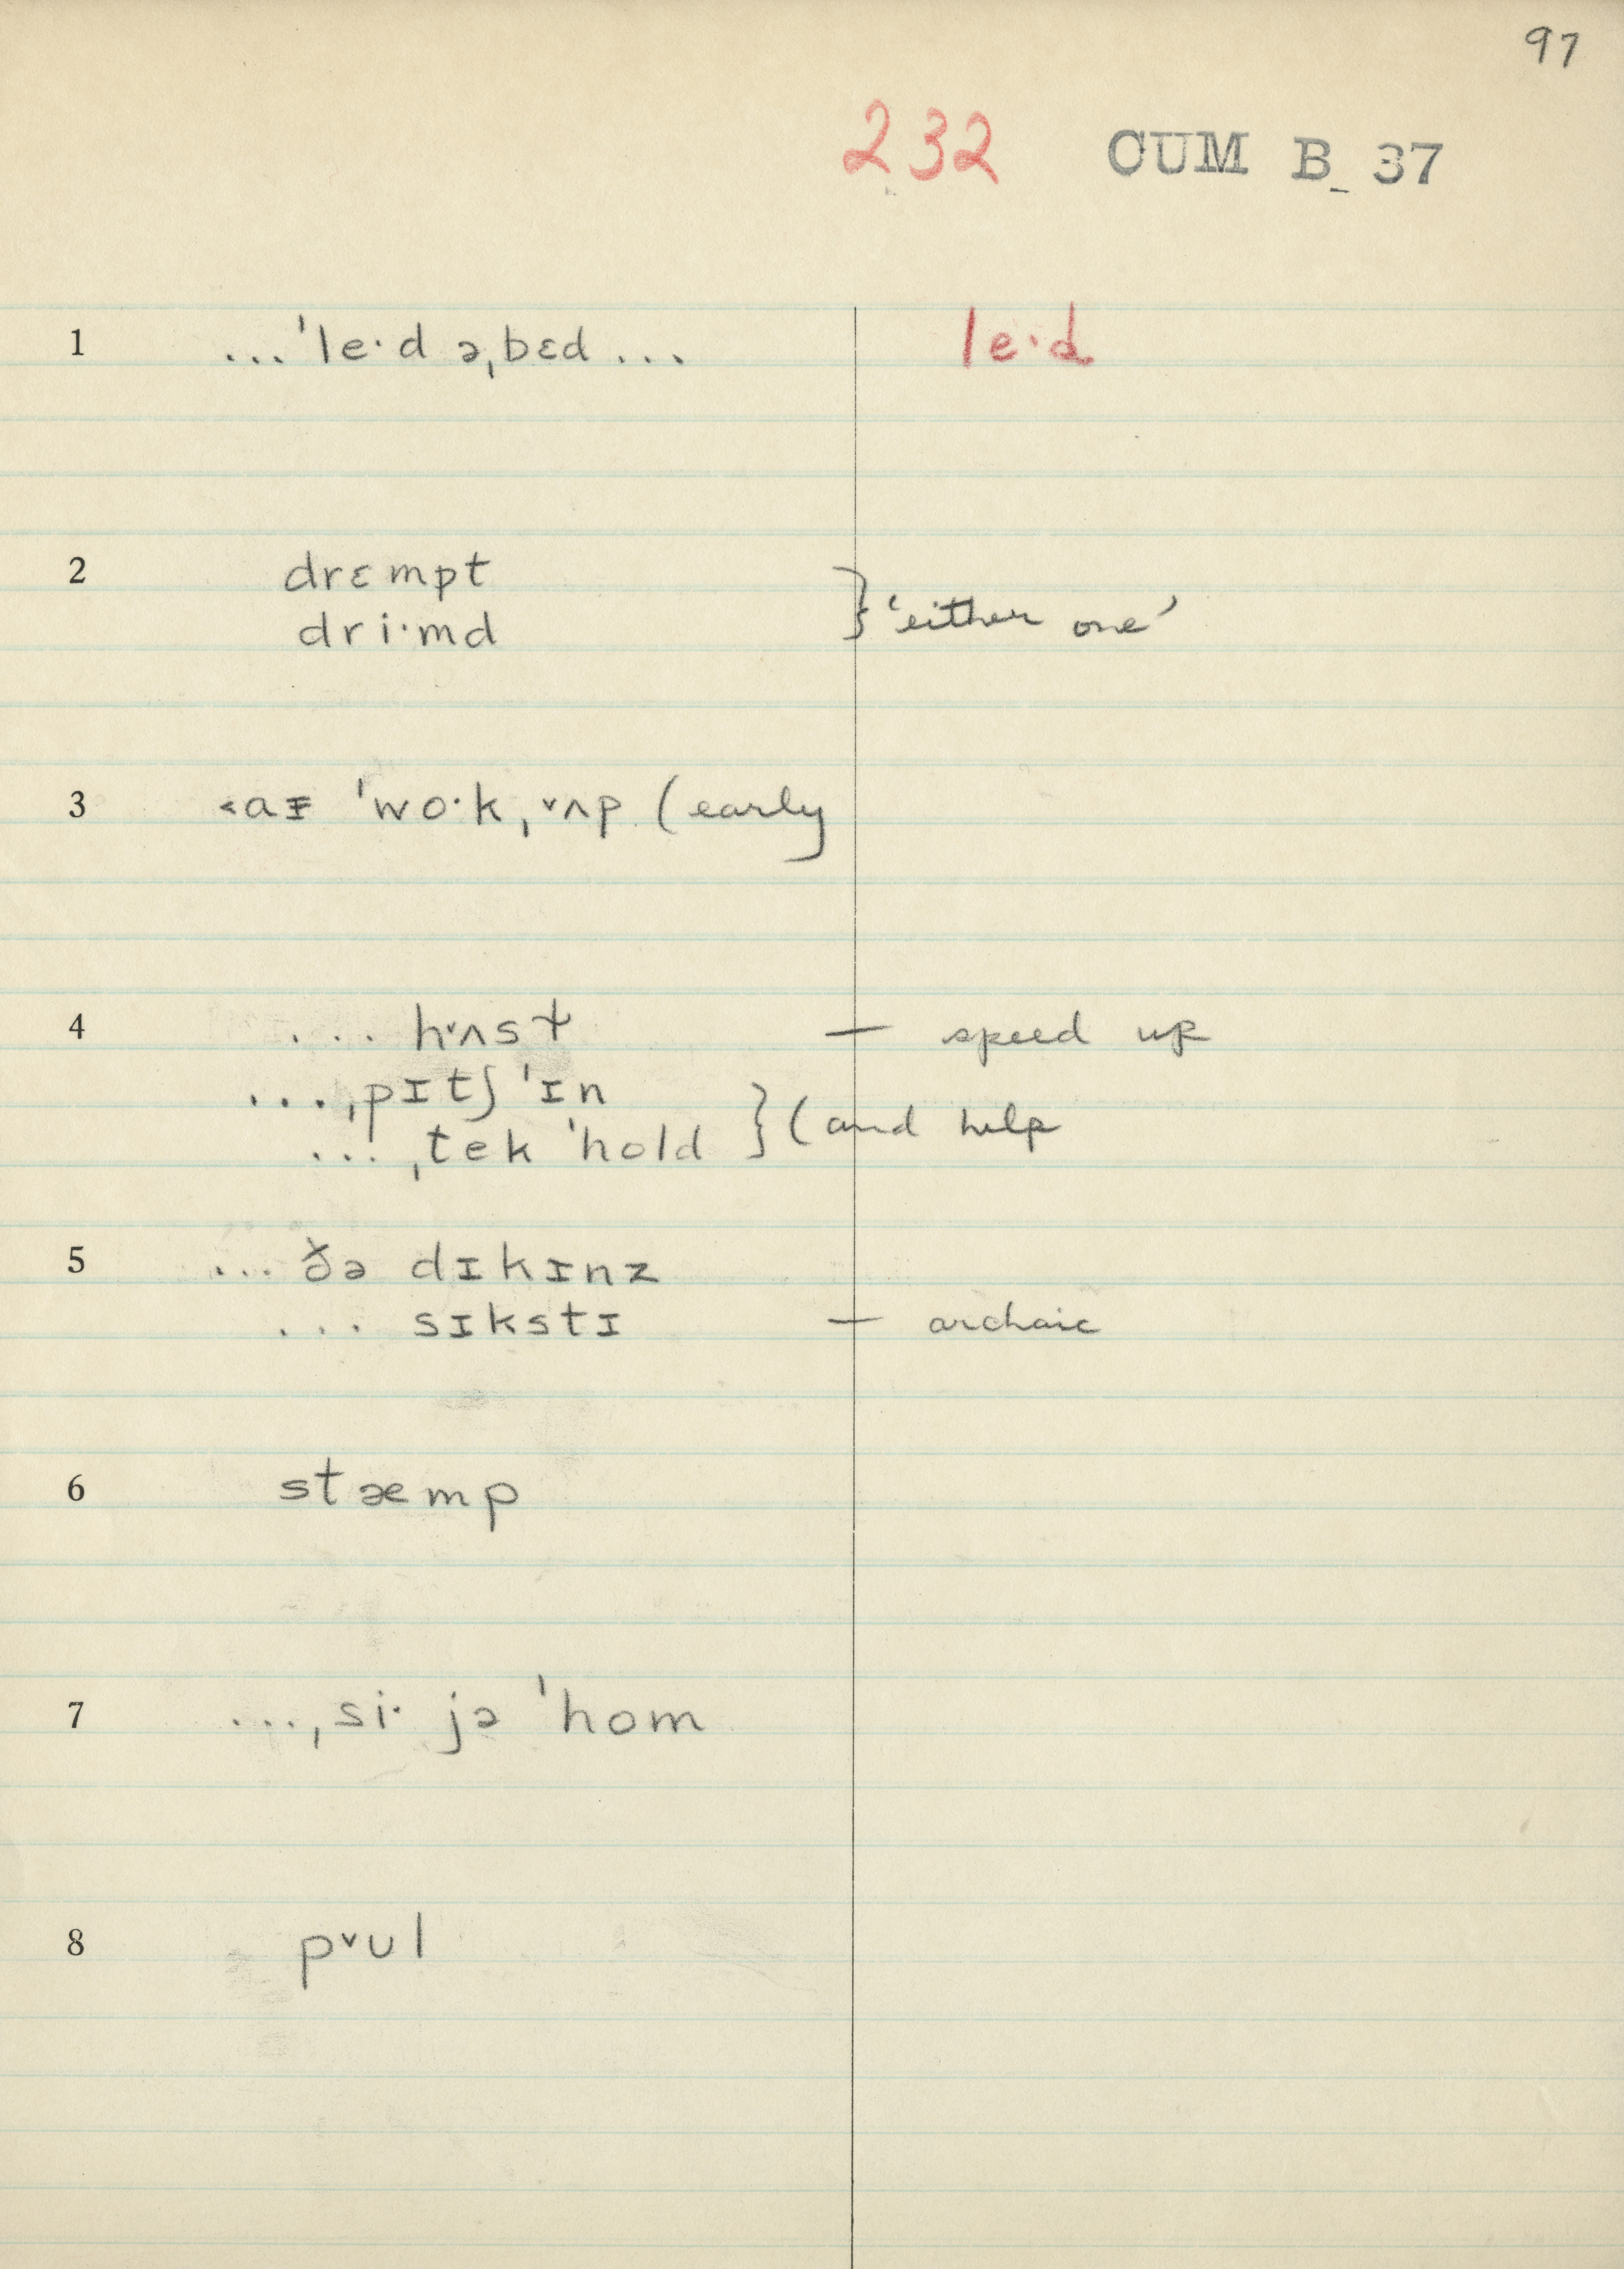 97
232 CUM B 37
1 ...ˈle·d əˌbɛd ... le·d
2 drɛmpt
dri·md } ‘either one’
3 ˂aɪ ˈwo·kˌ˅ʌp (early
4 ... h˅ʌst — speed up
...ˌpɪtʃ ˈɪn
...ˌtek ˈhold } (and help
5 ... ðə dɪkɪnz
... sɪkstɪ — archaic
6 stæmp
7 ...ˌsi· jə ˈhom
8 p˅ʊl